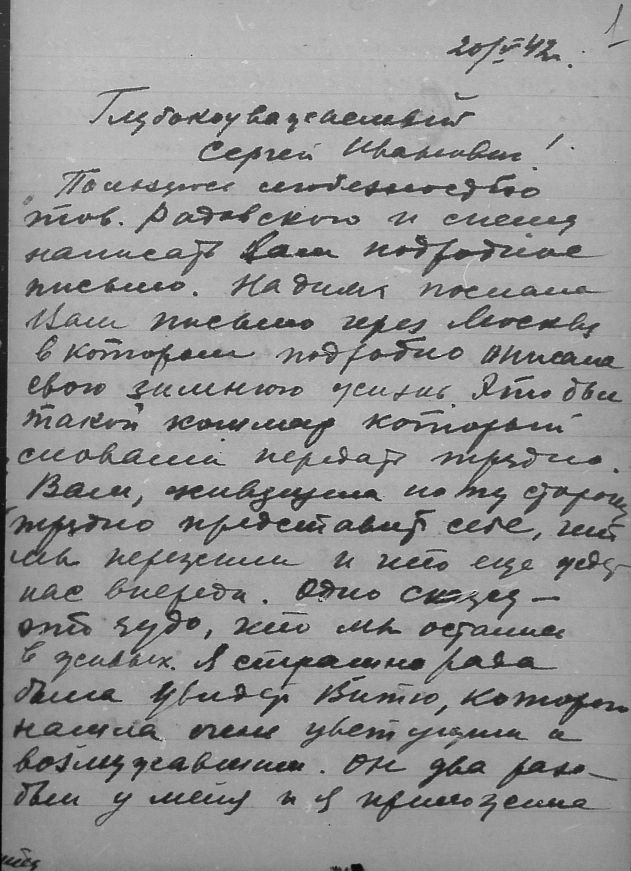 1
20/V 42г.
Глубокоуважаемый
Сергей Иванович!
Пользуюсь любезностью
тов. Радовского и спешу
написать Вам подробное
письмо. На днях послала
Вам письмо через Москву
в котором подробно описала
свою зимнюю жизнь. Это был
такой кошмар который
словами передать трудно.
Вам, живущим по ту сторону
трудно представить себе, что
мы пережили и что еще ждет
нас впереди. Одно скажу —
это чудо, что мы остались
в живых. Я страшно рада
была увидеть Витю, которого
нашла очень цветущим и
возмужавшим. Он два раза
был у меня и я приложила